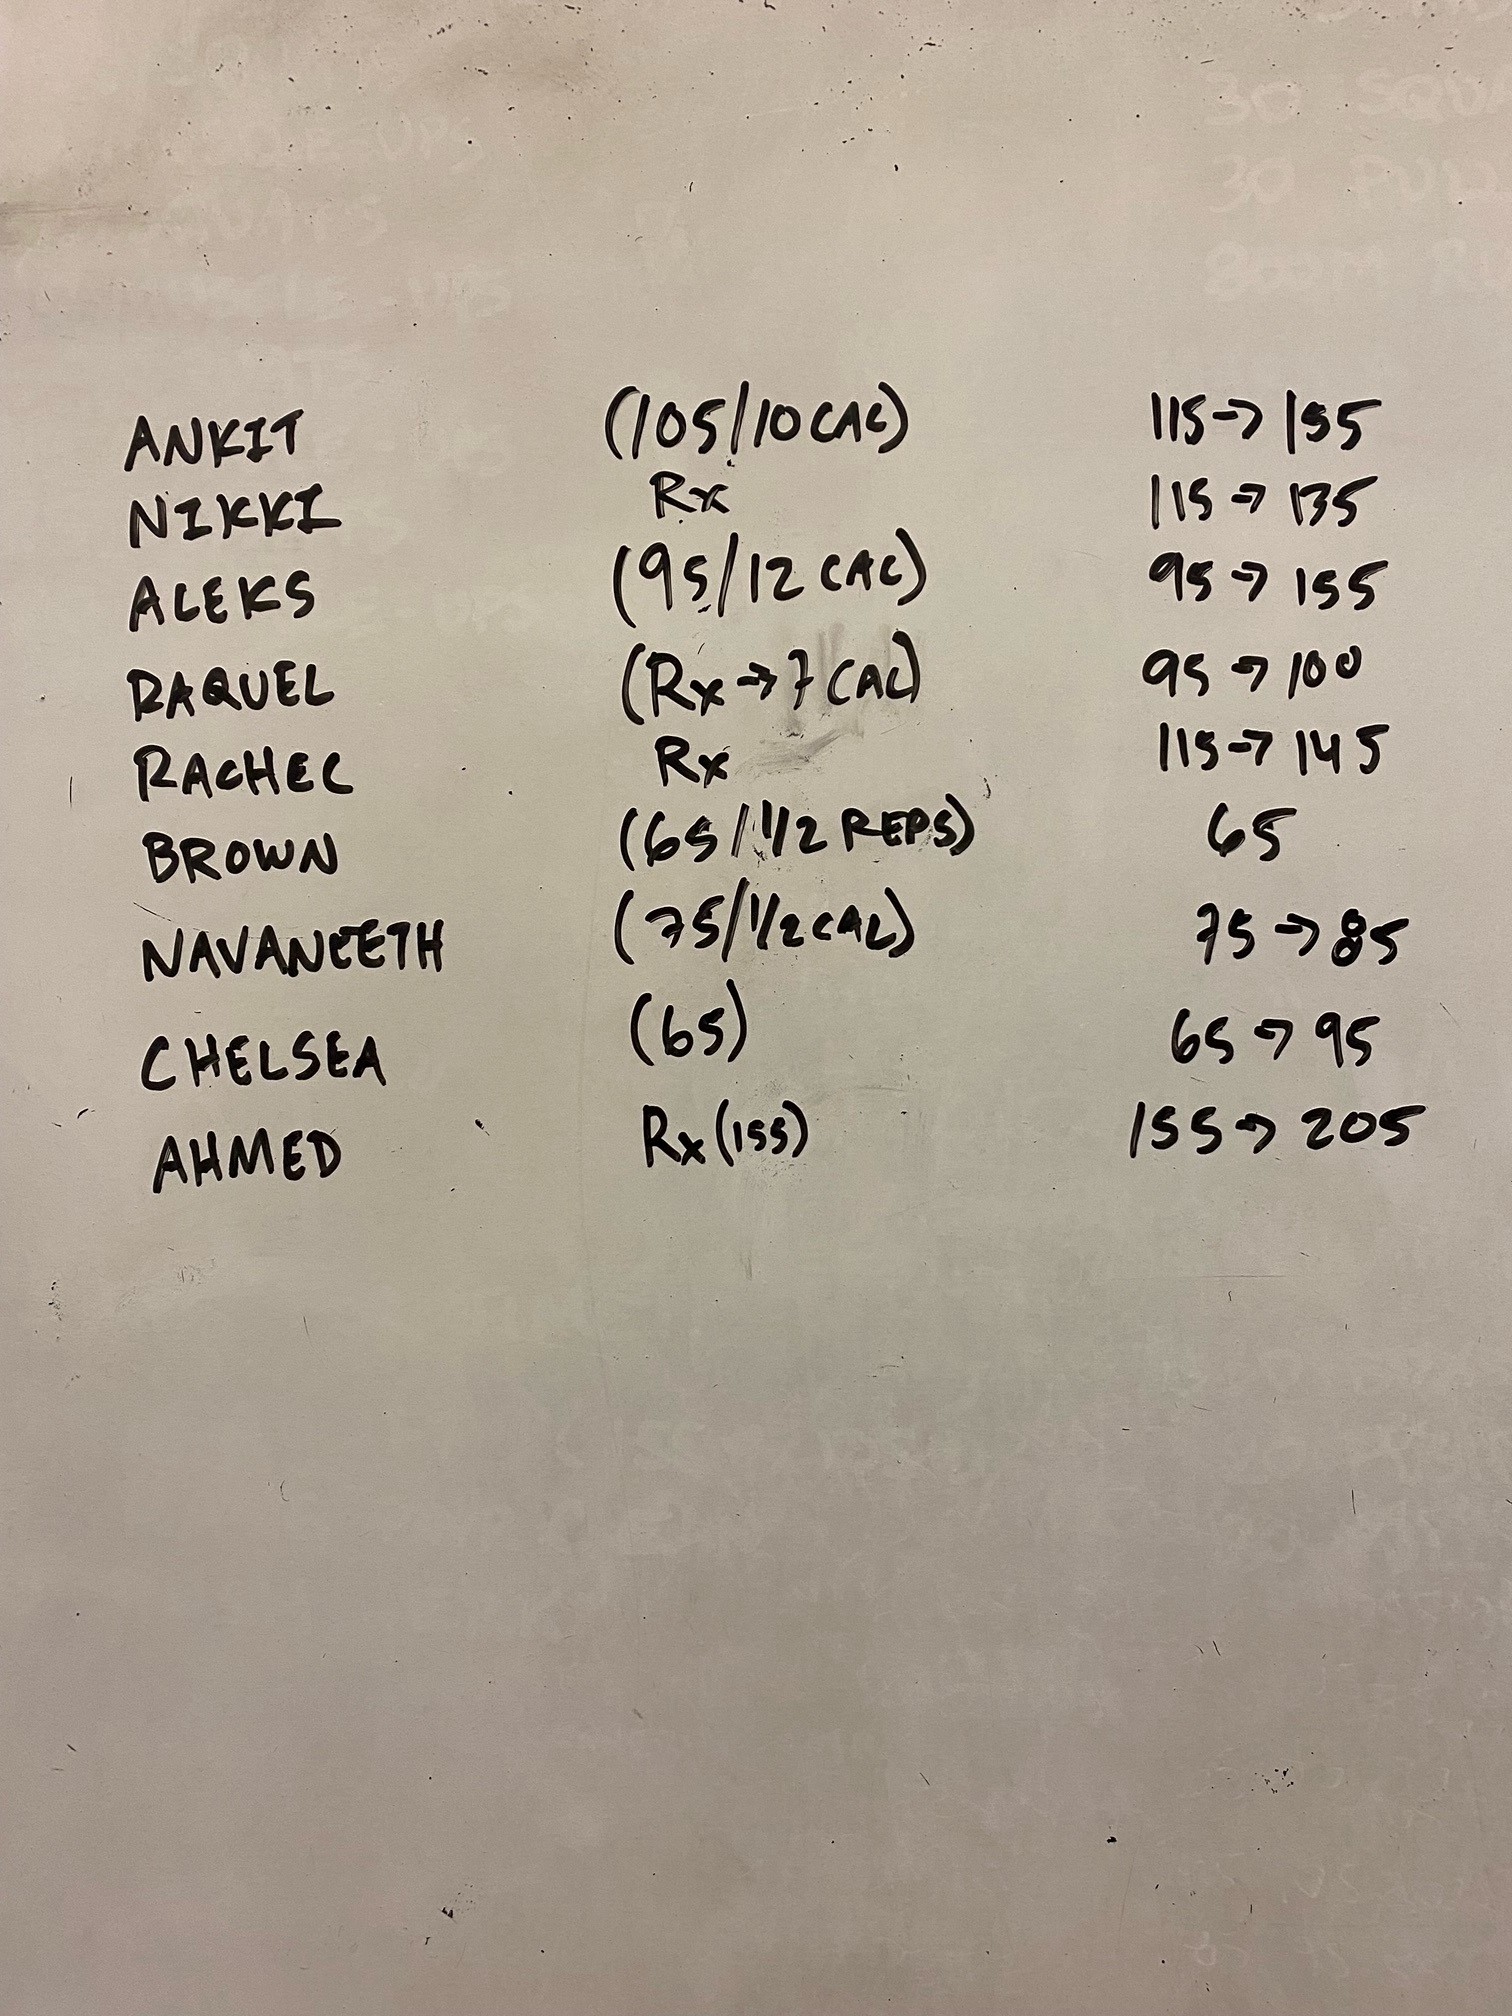 30 SQUA
30 PULL
800M RU
ANKIT (105/10 CAL) 115→155
NIKKI Rx 115→135
ALEKS (95/12 CAL) 95→155
RAQUEL (Rx→7 CAL) 95→100
RACHEL Rx 115→145
BROWN (65/1/2 REPS) 65
NAVANEETH (75/1/2 CAL) 75→85
CHELSEA (65) 65→95
AHMED Rx (155) 155→205